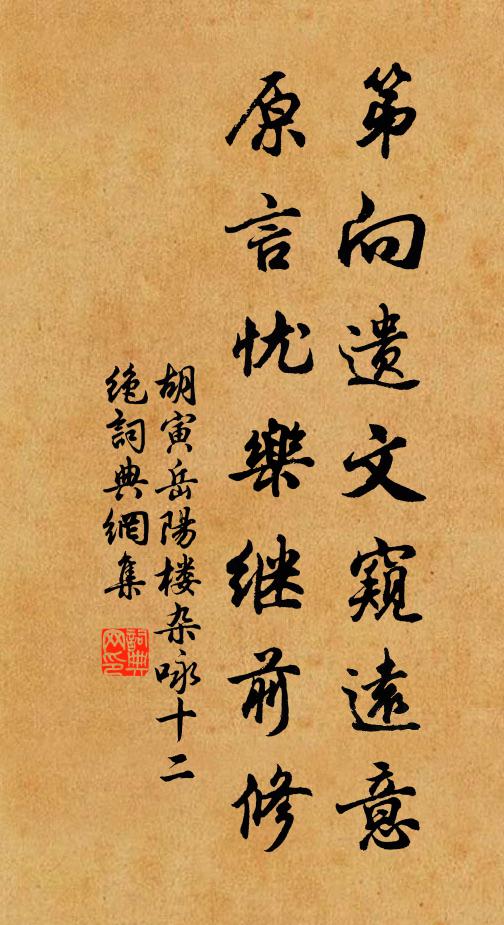 第向遗文窥遠意
原言忧樂继前修
胡寅岳陽楼杂咏十二
绝詞典網集
詞典网印